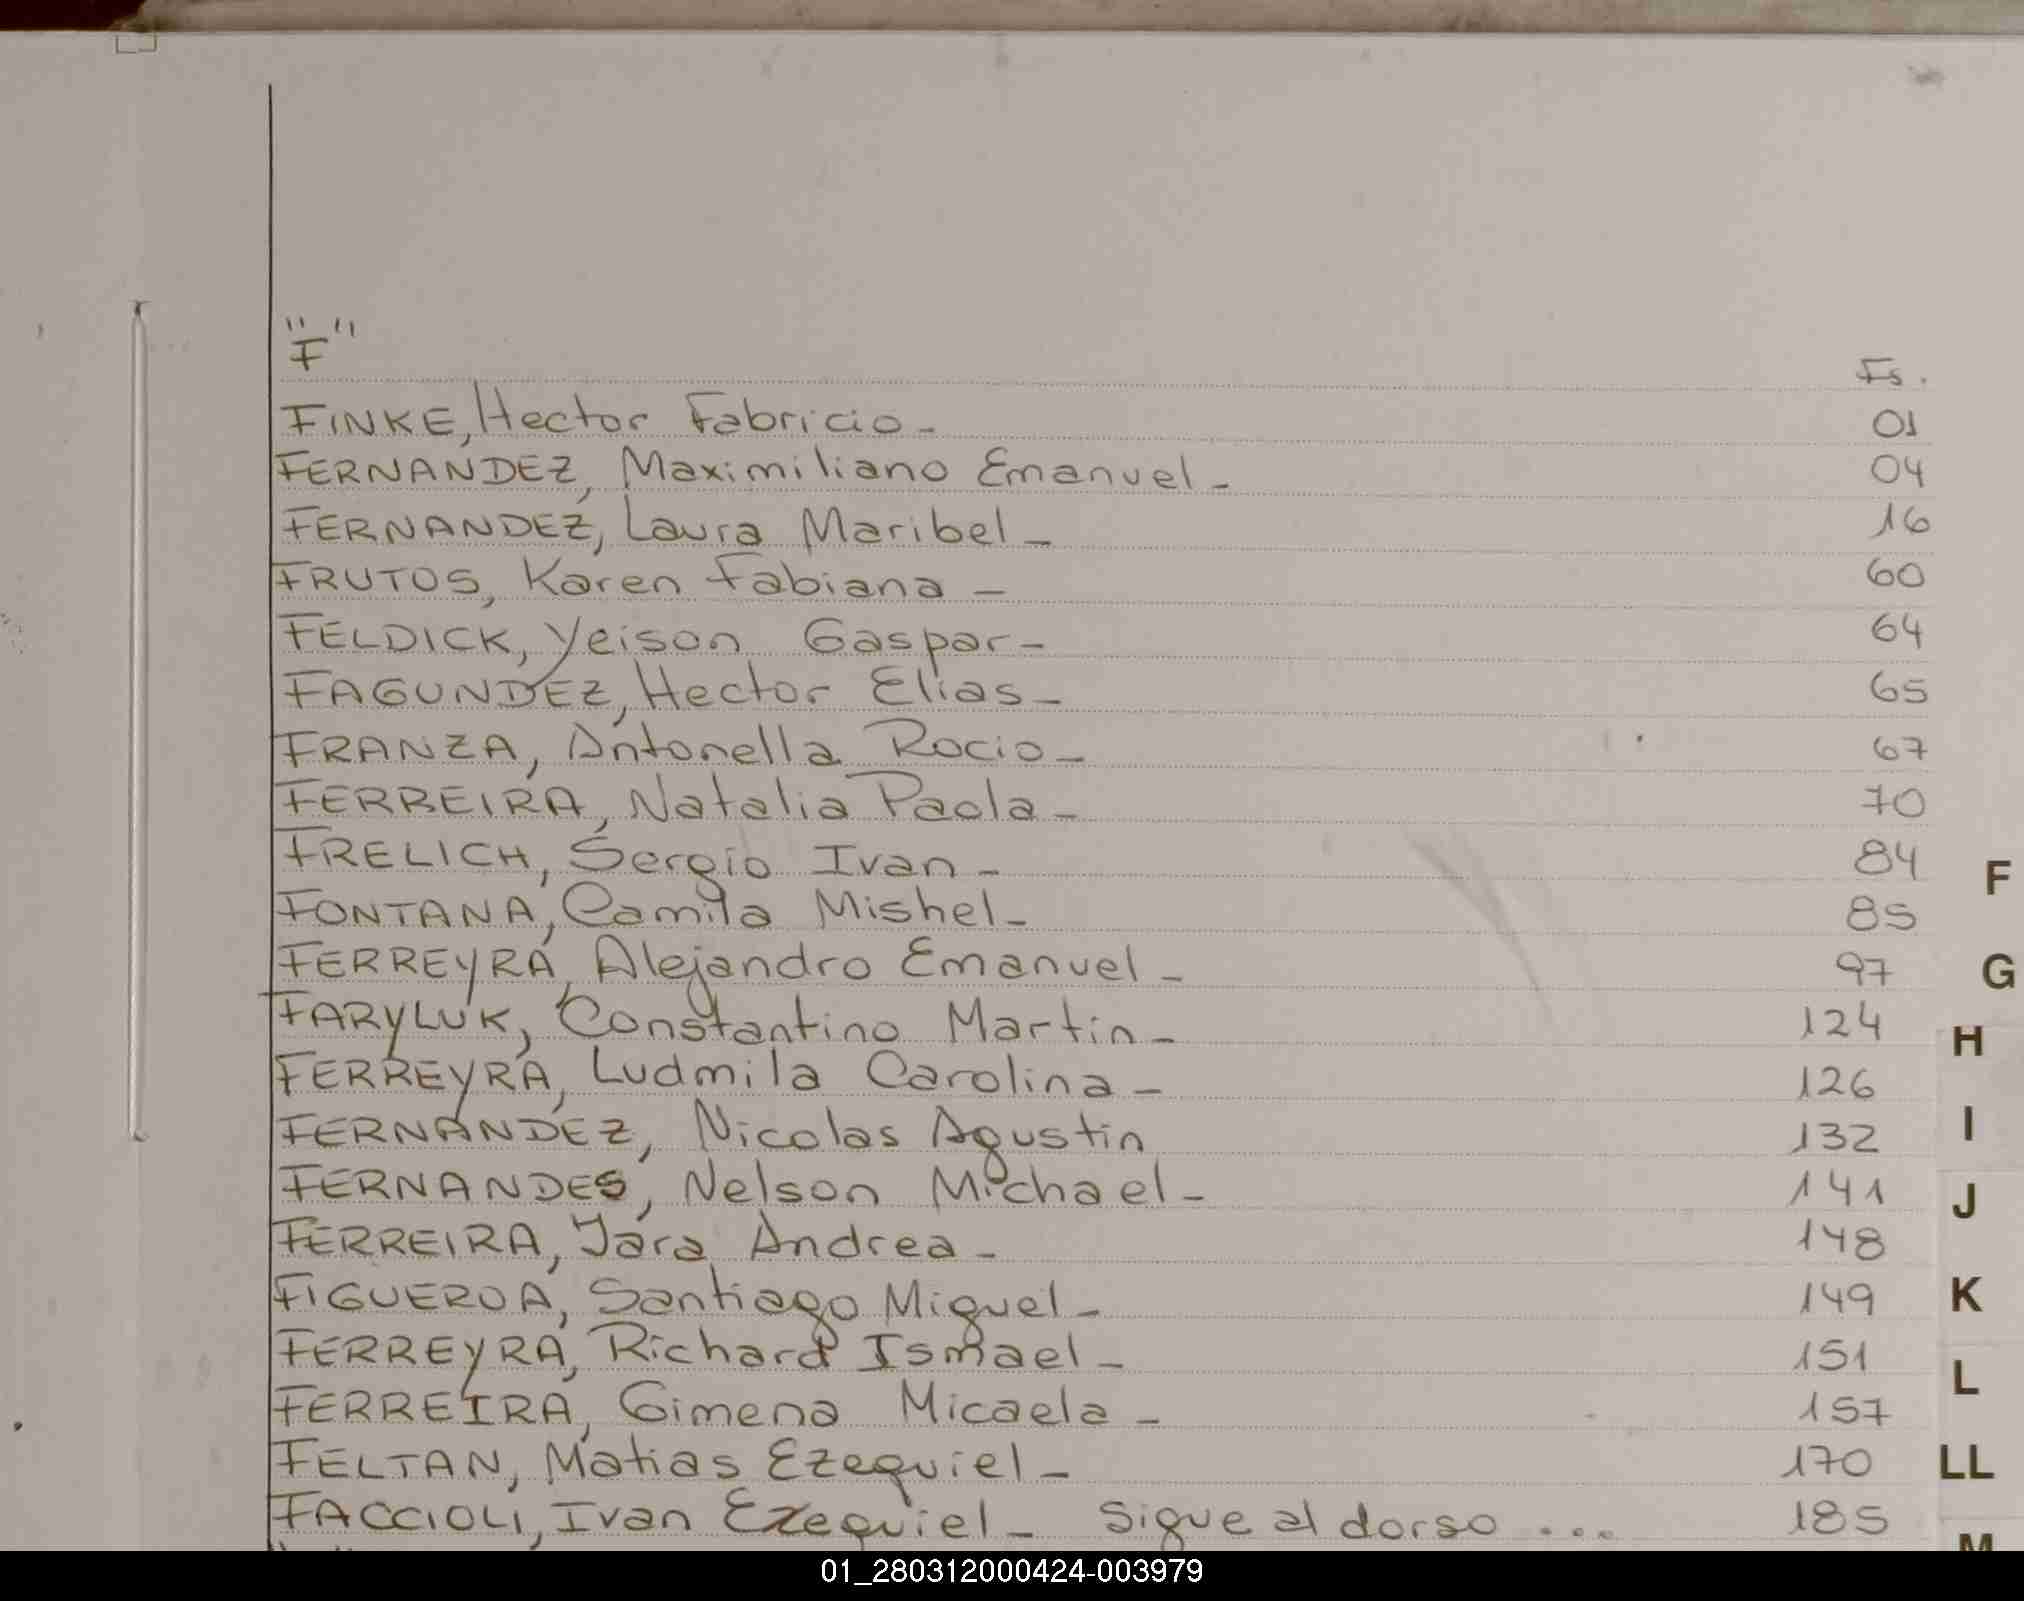 "F"
Fs.
FINKE, Hector Fabricio- 01
FERNANDEZ, Maximiliano Emanuel- 04
FERNANDEZ, Laura Maribel- 16
FRUTOS, Karen Fabiana - 60
FELDICK, Yeison Gaspar- 64
FAGUNDEZ, Hector Elias- 65
FRANZA, Antonella Rocio- 67
FERREIRA, Natalia Paola- 70
FRELICH, Sergio Ivan- 84
FONTANA, Camila Mishel- 85
FERREYRA, Alejandro Emanuel- 97
FARYLUK, Constantino Martin- 124
FERREYRA, Ludmila Carolina- 126
FERNANDEZ, Nicolas Agustin 132
FERNANDES, Nelson Michael- 141
FERREIRA, Yara Andrea- 148
FIGUEROA, Santiago Miguel- 149
FERREYRA, Richard Ismael- 151
FERREIRA, Gimena Micaela- 157
FELTAN, Matias Ezequiel- 170
FACCIOLI, Ivan Ezequiel- Sigue al dorso ... 185
F
G
H
I
J
K
L
LL
M
01_280312000424-003979